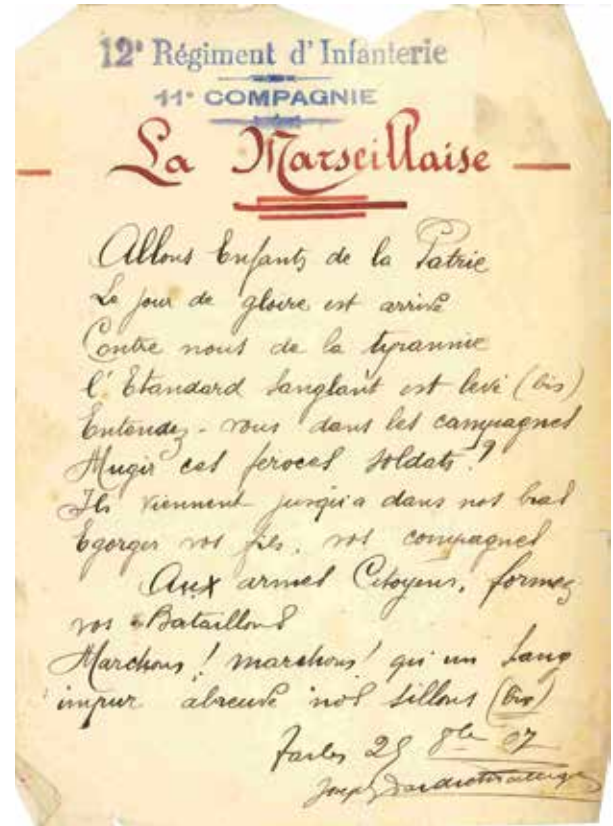 12e Régiment d'Infanterie
11e COMPAGNIE
La Marseillaise
Allons Enfants de la Patrie
Le jour de gloire est arrivé
Contre nous de la tyrannie
l'Etandard sanglant est levé (bis)
Entendez-vous dans les campagnes
Mugir ces feroces soldats ?
Ils viennent jusqu'a dans nos bras
Egorger vos fils, vos compagnes
Aux armes Citoyens, formez
vos Bataillons
Marchons ! marchons ! qu'un sang
impur abreuve nos sillons (bis)
Tarbes 25 8bre 07
Joseph